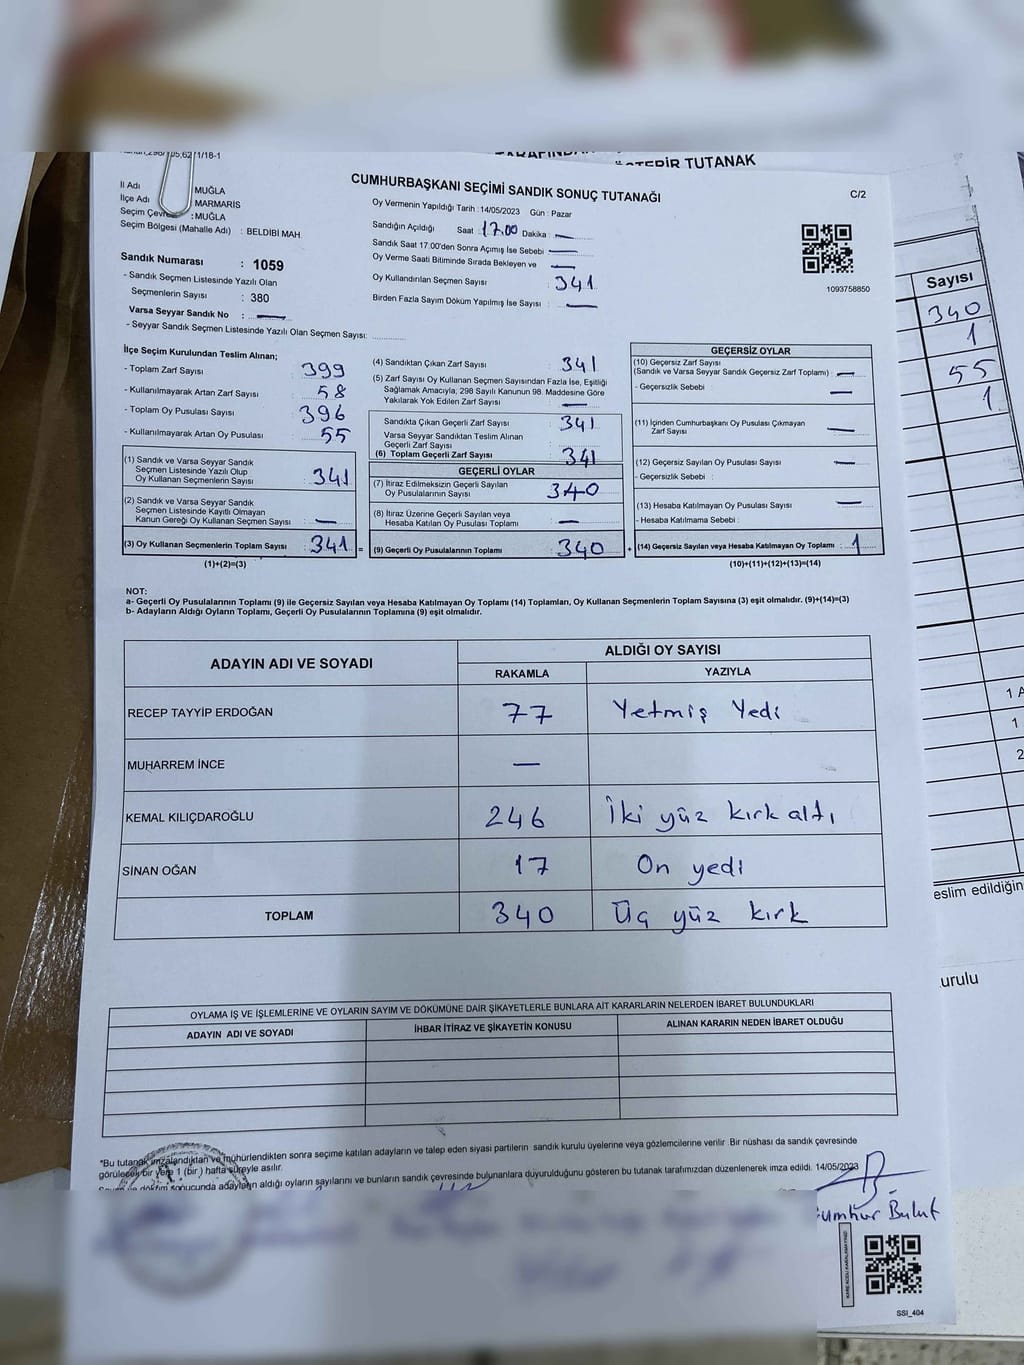 TUTANAK
CUMHURBAŞKANI SEÇİMİ SANDIK SONUÇ TUTANAĞI
C/2
İl Adı MUĞLA
İlçe Adı MARMARİS
Seçim Çevresi : MUĞLA
Seçim Bölgesi (Mahalle Adı) : BELDİBİ MAH.
Oy Vermenin Yapıldığı Tarih : 14/05/2023 Gün : Pazar
Sandığın Açıldığı Saat : 17.00 Dakika : —
Sandık Saat 17:00'den Sonra Açımış İse Sebebi : —
Oy Verme Saati Bitiminde Sırada Bekleyen ve —
Oy Kullandırılan Seçmen Sayısı : 341
Birden Fazla Sayım Döküm Yapılmış İse Sayısı : —
1093758850
Sandık Numarası : 1059
- Sandık Seçmen Listesinde Yazılı Olan
Seçmenlerin Sayısı : 380
Varsa Seyyar Sandık No : —
- Seyyar Sandık Seçmen Listesinde Yazılı Olan Seçmen Sayısı:
İlçe Seçim Kurulundan Teslim Alınan;
- Toplam Zarf Sayısı : 399
- Kullanılmayarak Artan Zarf Sayısı : 58
- Toplam Oy Pusulası Sayısı : 396
- Kullanılmayarak Artan Oy Pusulası : 55
(1) Sandık ve Varsa Seyyar Sandık
Seçmen Listesinde Yazılı Olup
Oy Kullanan Seçmenlerin Sayısı : 341
(2) Sandık ve Varsa Seyyar Sandık
Seçmen Listesinde Kayıtlı Olmayan
Kanun Gereği Oy Kullanan Seçmen Sayısı : —
(3) Oy Kullanan Seçmenlerin Toplam Sayısı : 341 =
(1)+(2)=(3)
(4) Sandıktan Çıkan Zarf Sayısı : 341
(5) Zarf Sayısı Oy Kullanan Seçmen Sayısından Fazla İse, Eşitliği
Sağlamak Amacıyla, 298 Sayılı Kanunun 98. Maddesine Göre
Yakılarak Yok Edilen Zarf Sayısı : —
Sandıkta Çıkan Geçerli Zarf Sayısı : 341
Varsa Seyyar Sandıktan Teslim Alınan
Geçerli Zarf Sayısı
(6) Toplam Geçerli Zarf Sayısı : 341
GEÇERLİ OYLAR
(7) İtiraz Edilmeksizin Geçerli Sayılan
Oy Pusulalarının Sayısı : 340
(8) İtiraz Üzerine Geçerli Sayılan veya
Hesaba Katılan Oy Pusulası Toplamı : —
(9) Geçerli Oy Pusulalarının Toplamı : 340 +
GEÇERSİZ OYLAR
(10) Geçersiz Zarf Sayısı
(Sandık ve Varsa Seyyar Sandık Geçersiz Zarf Toplamı) : —
- Geçersizlik Sebebi : —
(11) İçinden Cumhurbaşkanı Oy Pusulası Çıkmayan
Zarf Sayısı : —
(12) Geçersiz Sayılan Oy Pusulası Sayısı : —
- Geçersizlik Sebebi :
(13) Hesaba Katılmayan Oy Pusulası Sayısı : —
- Hesaba Katılmama Sebebi :
(14) Geçersiz Sayılan veya Hesaba Katılmayan Oy Toplamı : 1
(10)+(11)+(12)+(13)=(14)
NOT:
a- Geçerli Oy Pusulalarının Toplamı (9) ile Geçersiz Sayılan veya Hesaba Katılmayan Oy Toplamı (14) Toplamları, Oy Kullanan Seçmenlerin Toplam Sayısına (3) eşit olmalıdır. (9)+(14)=(3)
b- Adayların Aldığı Oyların Toplamı, Geçerli Oy Pusulalarının Toplamına (9) eşit olmalıdır.
ADAYIN ADI VE SOYADI ALDIĞI OY SAYISI
RAKAMLA YAZIYLA
RECEP TAYYİP ERDOĞAN 77 Yetmiş Yedi
MUHARREM İNCE —
KEMAL KILIÇDAROĞLU 246 İki yüz kırk altı
SİNAN OĞAN 17 On yedi
TOPLAM 340 Üç yüz kırk
OYLAMA İŞ VE İŞLEMLERİNE VE OYLARIN SAYIM VE DÖKÜMÜNE DAİR ŞİKAYETLERLE BUNLARA AİT KARARLARIN NELERDEN İBARET BULUNDUKLARI
ADAYIN ADI VE SOYADI İHBAR İTİRAZ VE ŞİKAYETİN KONUSU ALINAN KARARIN NEDEN İBARET OLDUĞU
*Bu tutanak imzalandıktan ve mühürlendikten sonra seçime katılan adayların ve talep eden siyasi partilerin sandık kurulu üyelerine veya gözlemcilerine verilir. Bir nüshası da sandık çevresinde
görülecek bir yere 1 (bir) hafta süreyle asılır.
sonucunda adayların aldığı oyların sayılarını ve bunların sandık çevresinde bulunanlara duyurulduğunu gösteren bu tutanak tarafımızdan düzenlenerek imza edildi. 14/05/2023
Bulut
SSI_404
Sayısı
340
1
55
1
1
2
eslim edildiğin
urulu